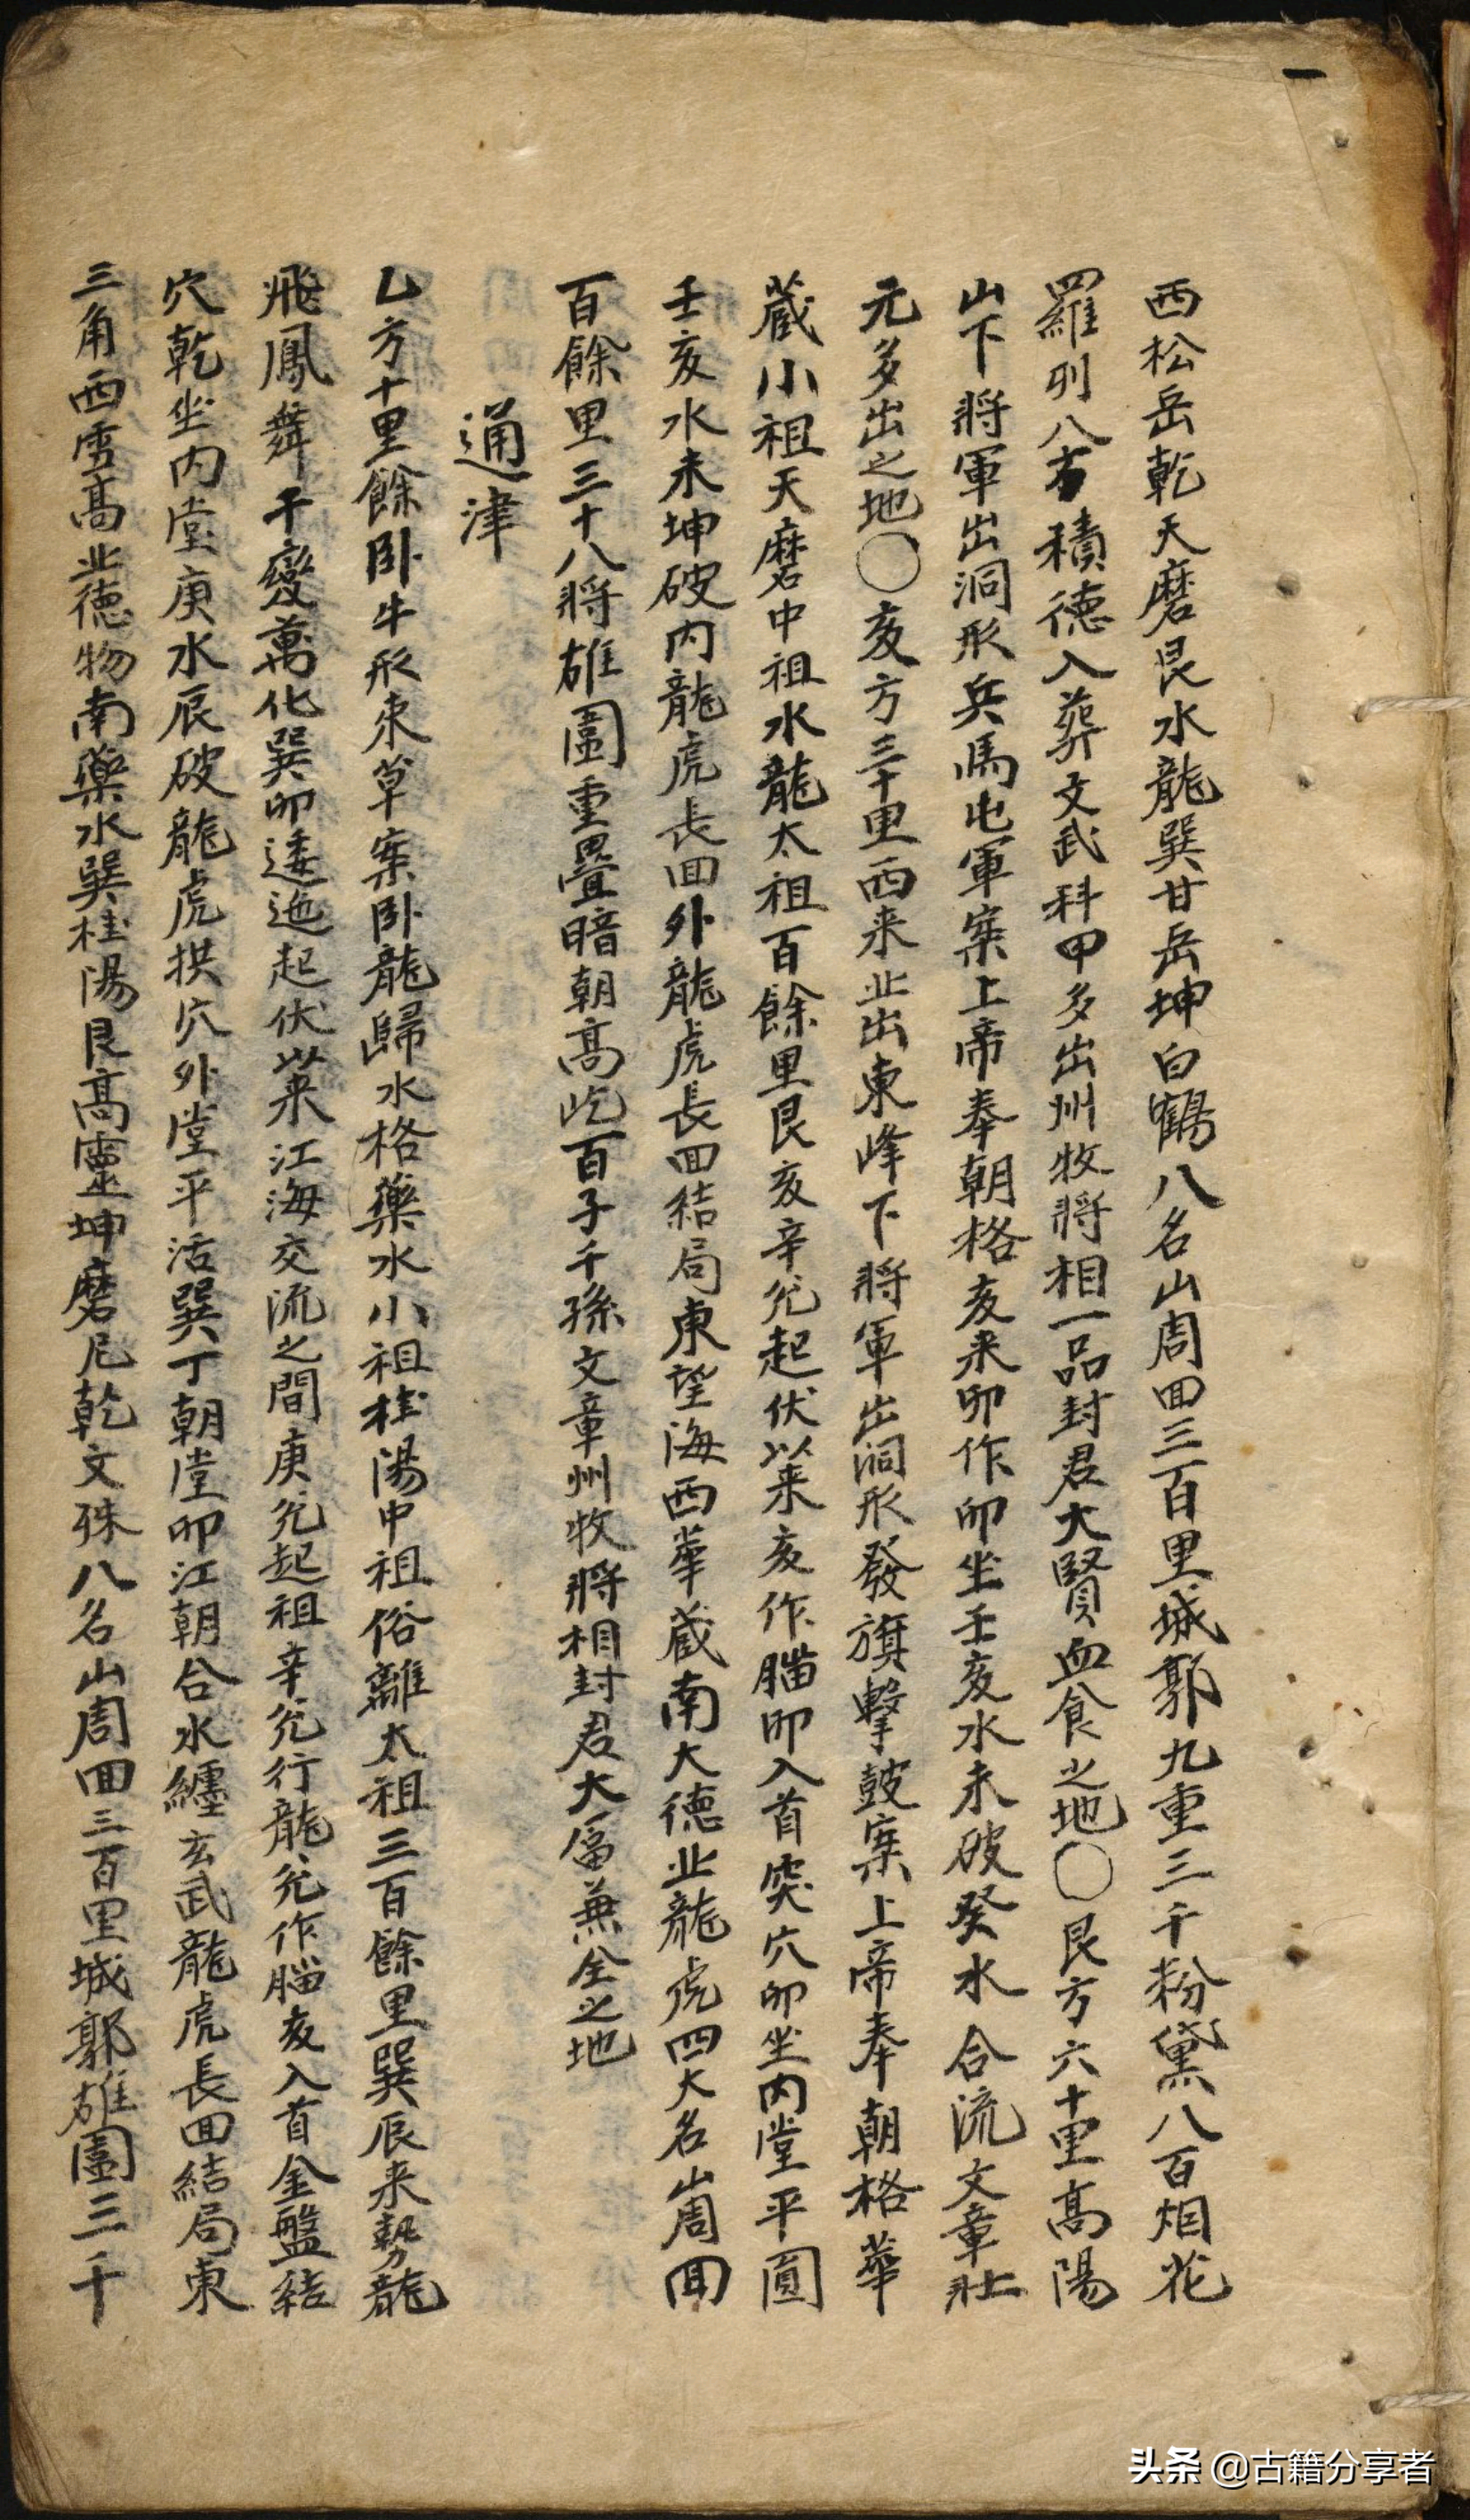 西松岳乾天磨艮水龍巽甘岳坤白鶴八名山周回三百里城郭九重三千粉黛八百烟花
羅列八方積德入葬文武科甲多出州牧將相一品封君大賢血食之地〇艮方六十里高陽
山下將軍出洞形兵馬屯軍案上帝奉朝格亥来卯作卯坐壬亥水未破癸水合流文章壯
元多出之地〇亥方三十里西来北出東峰下將軍出洞形發旗擊鼓案上帝奉朝格華
蔵小祖天磨中祖水龍太祖百餘里艮亥辛兊起伏以来亥作腦卯入首突穴卯坐内堂平圓
壬亥水未坤破内龍虎長回外龍虎長回結局東望海西華蔵南大德北龍虎四大名山周回
百餘里三十八將雄圖重疊暗朝高屹百子千孫文章州牧將相封君大富兼全之地
通津
乙方十里餘卧牛形束草案卧龍歸水格藥水小祖桂陽中祖俗離太祖三百餘里巽辰来勢龍
飛鳳舞千變萬化巽卯逶迤起伏以来江海交流之間庚兊起祖辛兊行龍兊作腦亥入首金盤結
穴乾坐内堂庚水辰破龍虎拱穴外堂平活巽丁朝堂卯江朝合水纏玄武龍虎長回結局東
三角西雪高北德物南藥水巽桂陽艮高靈坤磨尼乾文殊八名山周回三百里城郭雄圖三千
一
头条 @古籍分享者